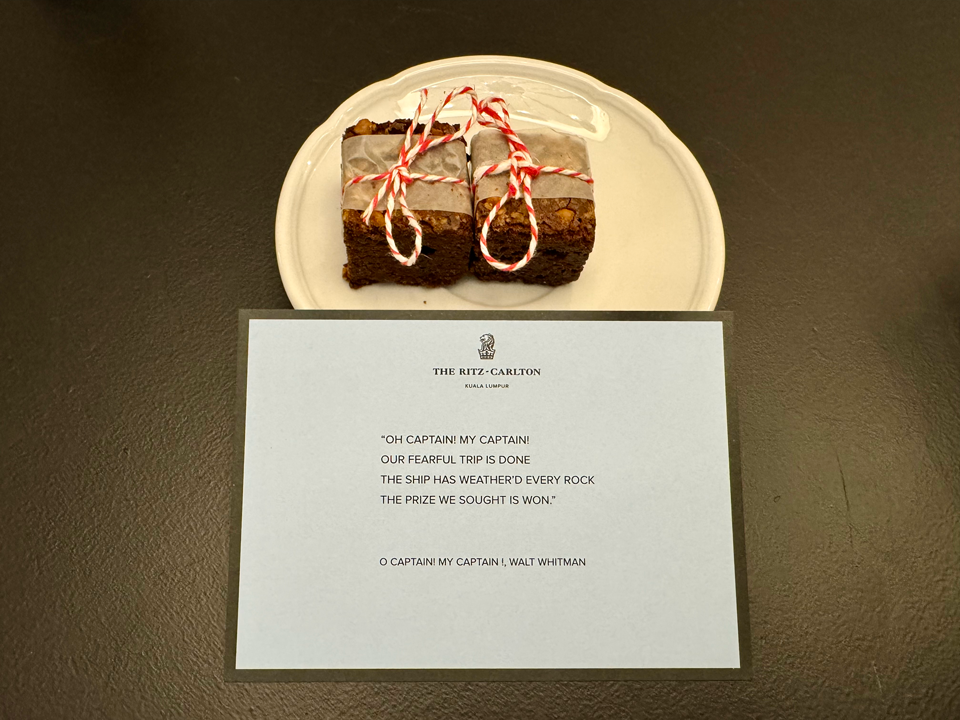 THE RITZ-CARLTON
KUALA LUMPUR
“OH CAPTAIN! MY CAPTAIN!
OUR FEARFUL TRIP IS DONE
THE SHIP HAS WEATHER’D EVERY ROCK
THE PRIZE WE SOUGHT IS WON.”
O CAPTAIN! MY CAPTAIN !, WALT WHITMAN